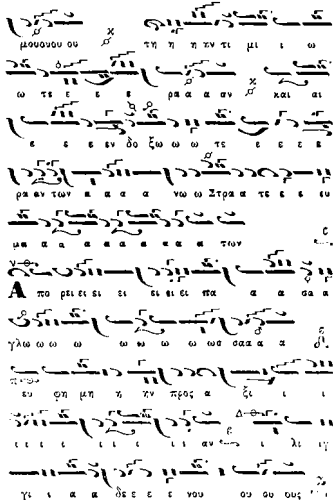 μουουου ου τη η η ην τι μι ι ω
ω τε ε ε ε ρα α α αν και αι
ε ε εν δο ξω ω ω τε ε ε ε ε
ρα αν των α α α α νω ω Στρα α τε ε ε ευ
μα α α α α α α α α α των
Α πο ρει ει ει ει ει ει ει πα α α σα α
γλω ω ω ω ω ω ω ω ω ωσ σα α α α
ευ φη μη η ην προς α ξι ι ι
ι ι ι ι ι ι ι αν ι λι ιγ
γι ι α α δε ε ε ε νου ου ου ους